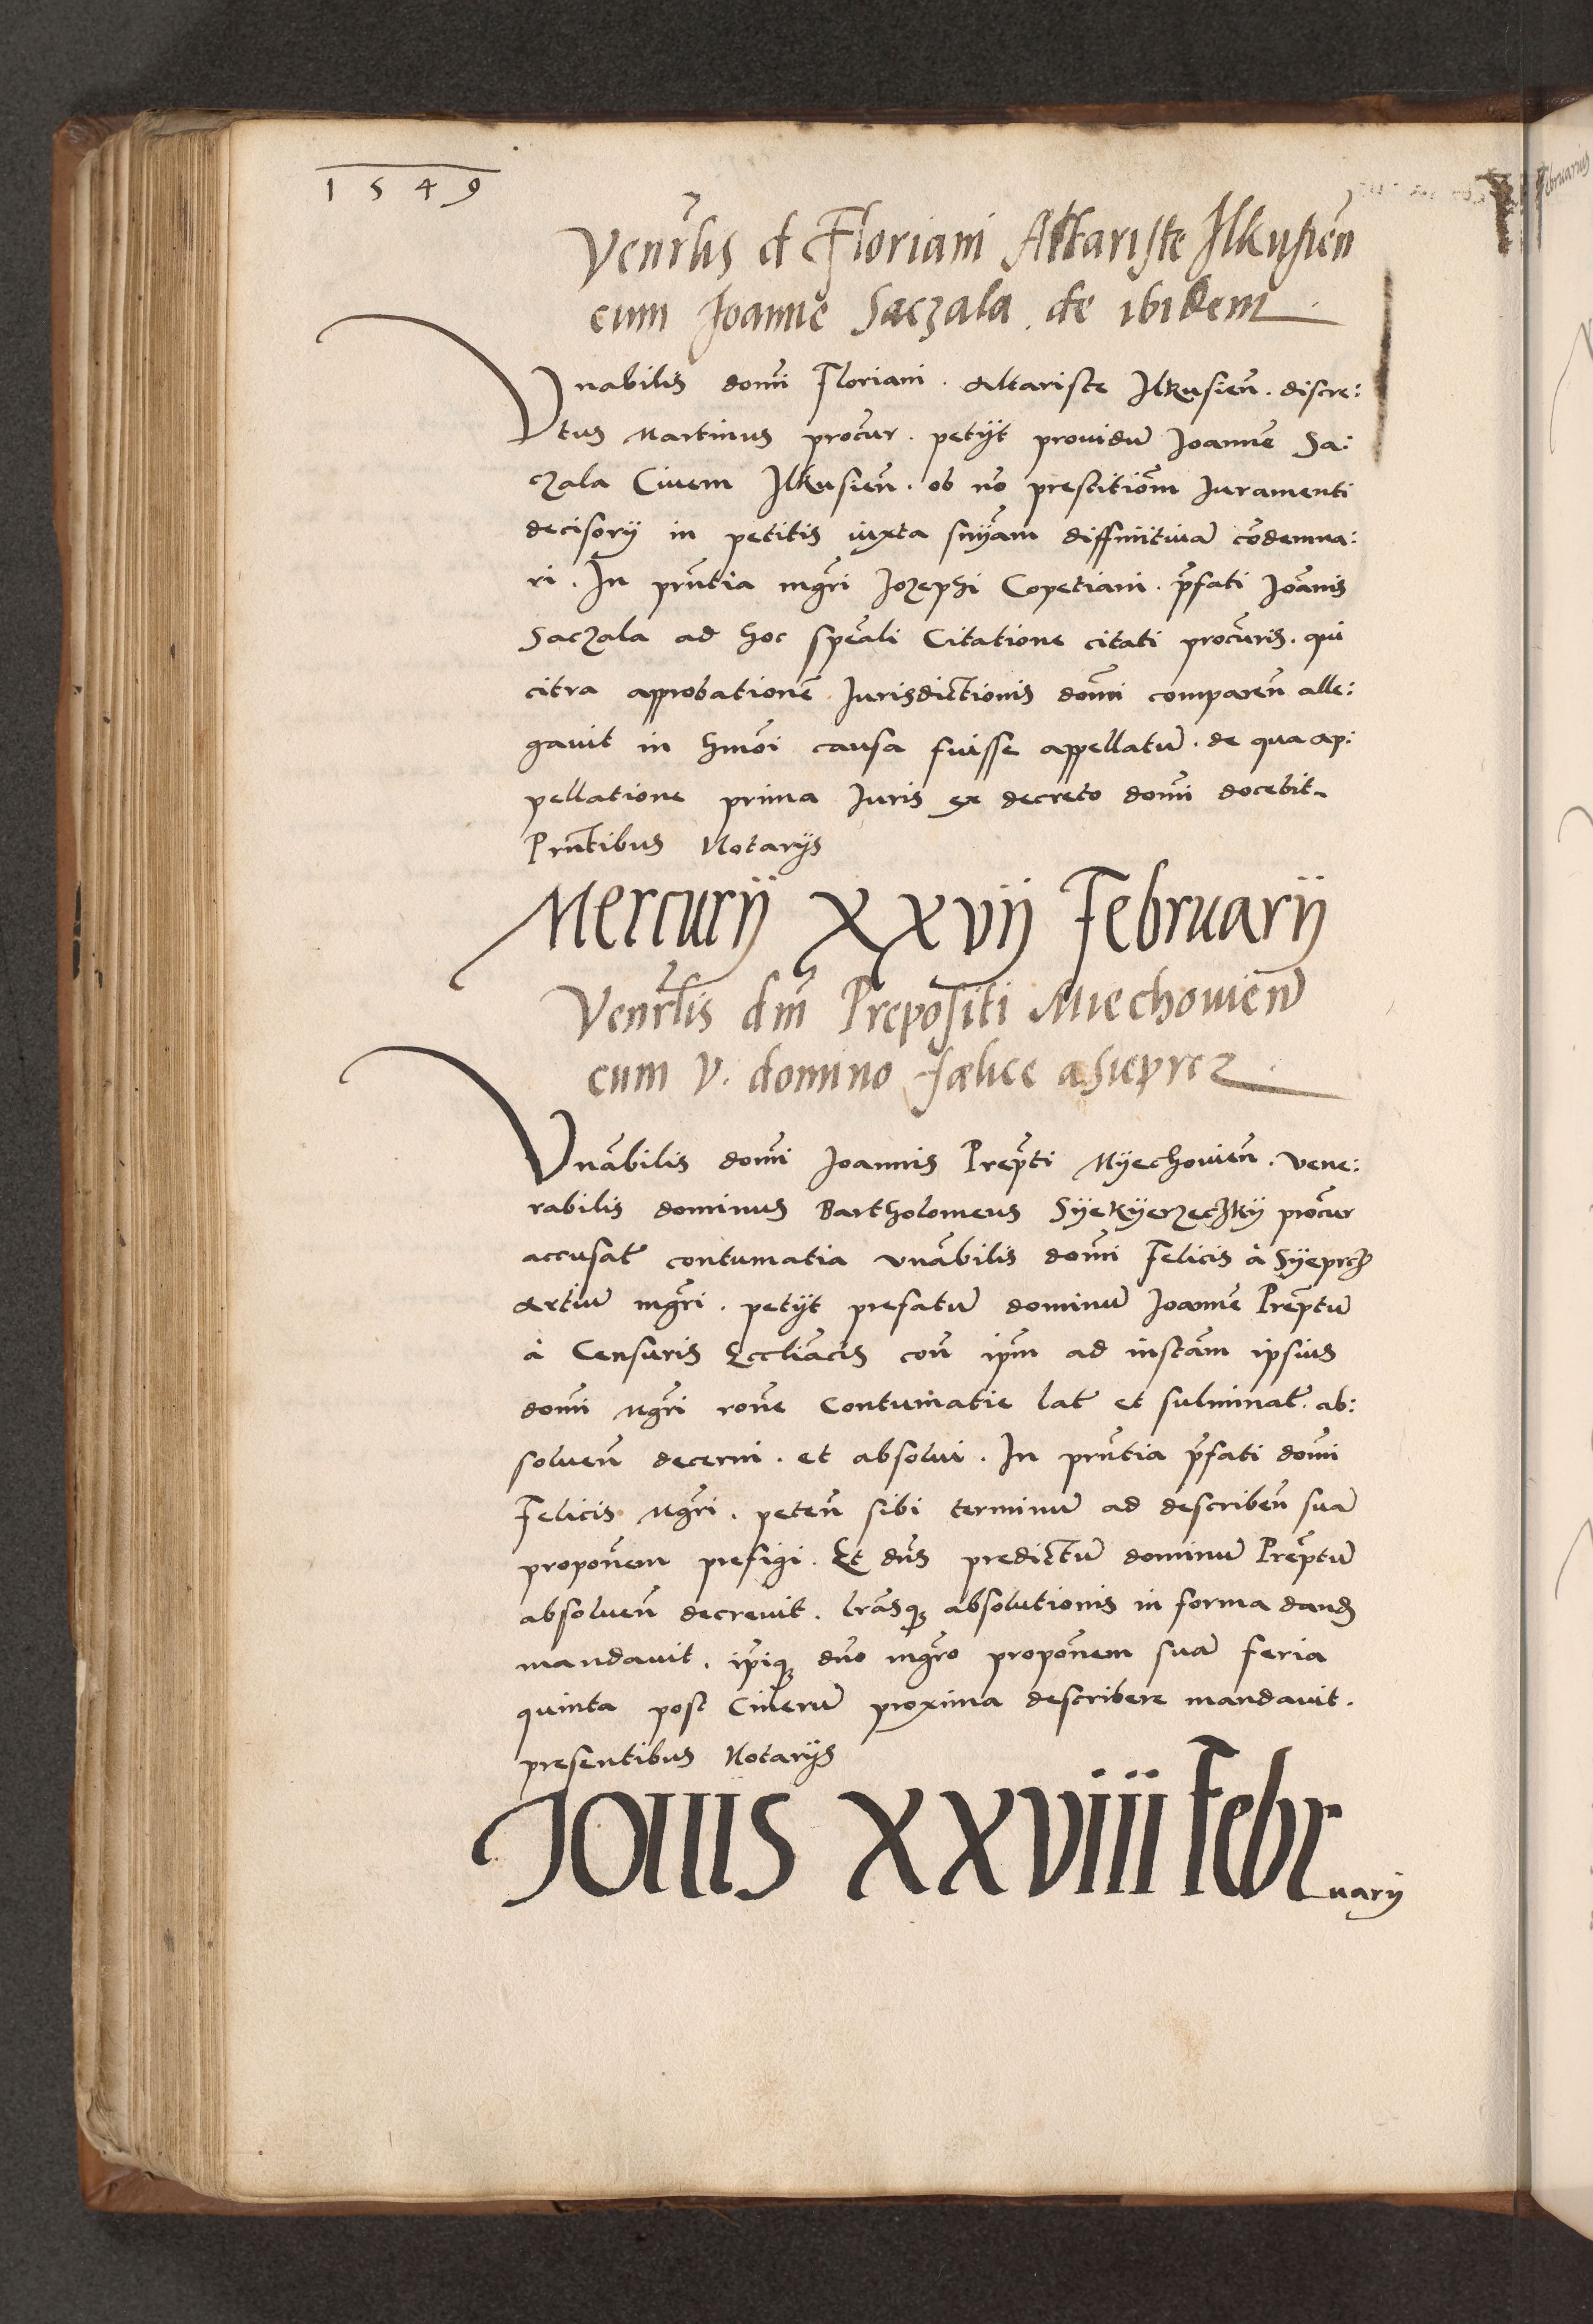 1549
Venrlis d Floriani Altariste Ilkusien
cum Joanne Saczala de ibidem
Vnabilis domi Floriani. Altariste Ilkusien. discre:
tus Martinus procur. petijt prouidu Joanne Sa:
czala Ciuem Ilkusien. ob no prestitiom Juramenti
decisorij in petitis iuxta snyam diffinitiua codemna:
ri. In pruntia mgri Jozephi Copetiani. pfati Joanis
Saczala ad hoc speali Citatione citati procuris. qui
citra approbatione Jurisdictionis domi comparen alle:
gauit in hmoi causa fuisse appellatu. de qua ap:
pellatione prima Juris ex decreto domi docebit
Prntibus Notarijs
Mercurij XXvij Februarij
Venrlis dni Prepositi Miechouien
cum V. domino Fælice a Sieprcz
Vnabilis domi Joannis Prepti Myechouien. vene:
rabilis dominus Bartholomeus Syekyerzeczky procur
accusat contumatia vnabilis domi Felicis à Syeprcz
Artiu mgri. petijt prefatu dominu Joanne Preptu
à Censuris Eccliacis con ipm ad instam ipsius
domi Mgri rone Contumatie lat et fulminat. ab:
soluen decerni. et absolui. In pruntia pfati domi
Felicis Mgri. peten sibi terminu ad describen sua
proponem prefigi. Et dns predictu dominu Preptu
absoluen decreuit. lrasq absolutionis in forma dand
mandauit. ipiq dno mgro proponem sua feria
quinta post Cineru proxima describere mandauit.
presentibus Notarijs
JOUIS XXVIII Februarij